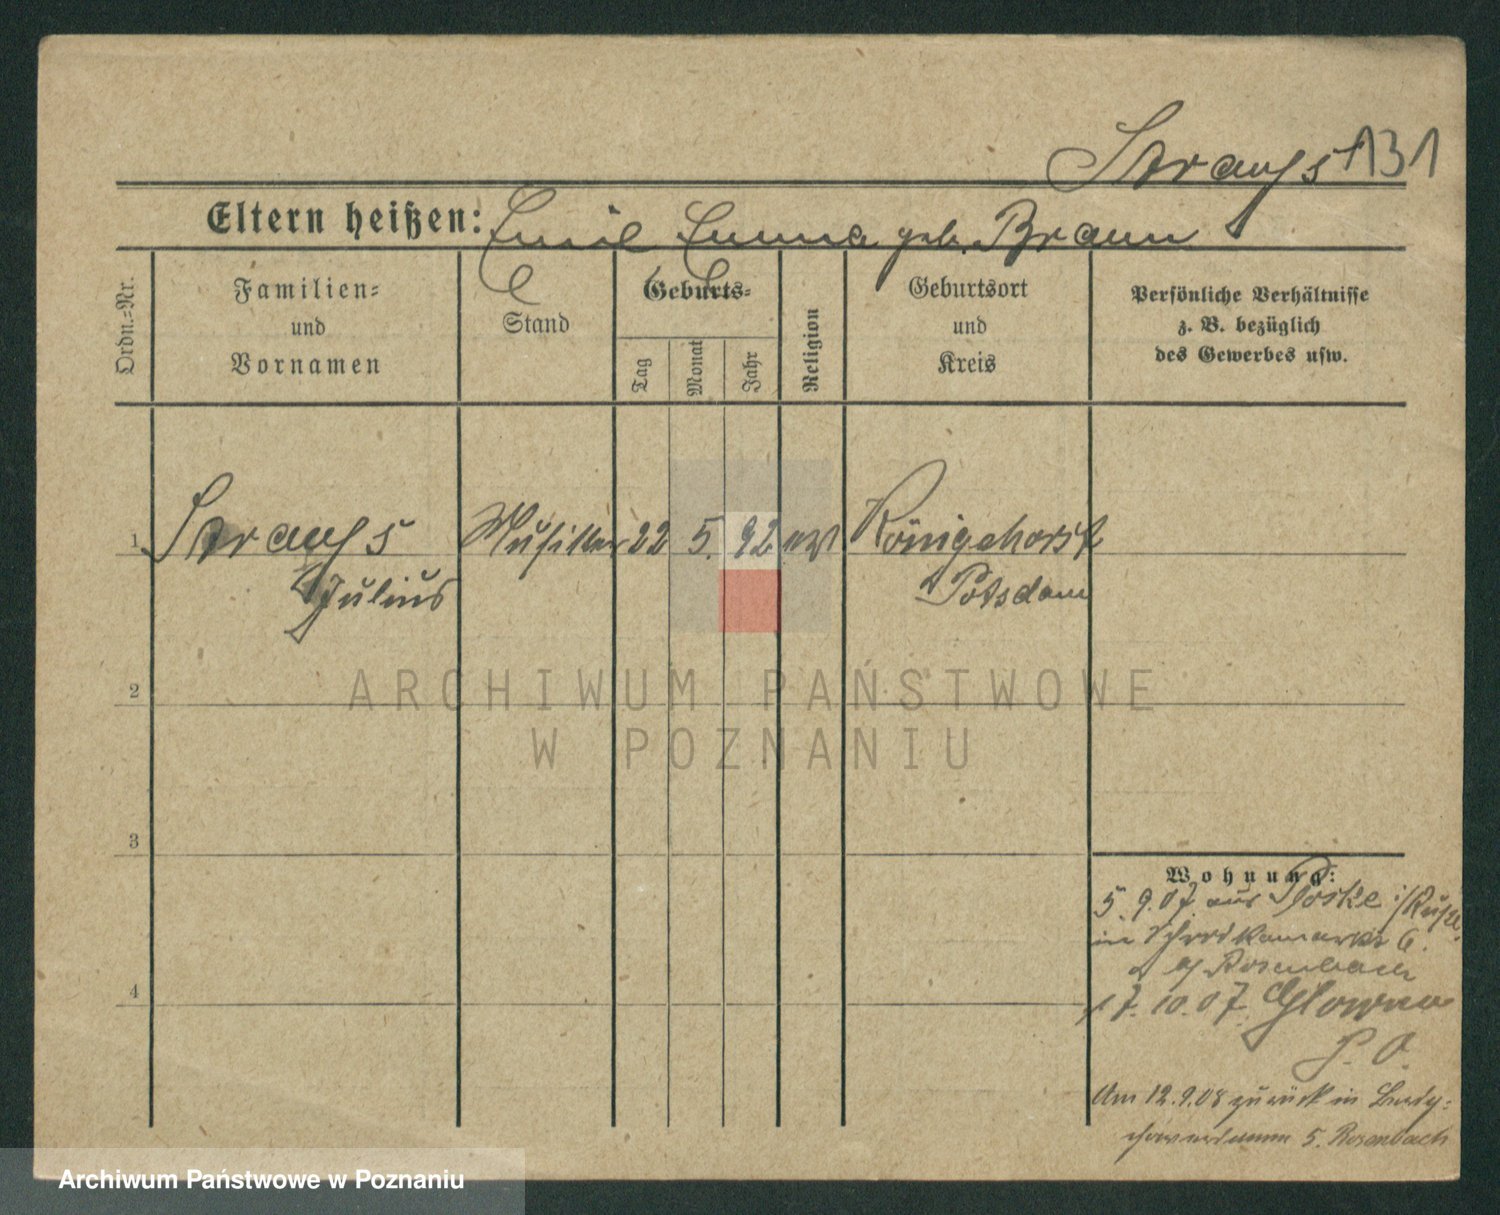 Strauss 131
Eltern heißen: Emil Emma geb. Braun
Ordn.-Nr.
Familien-
und
Vornamen
Stand
Geburts-
Tag
Monat
Jahr
Religion
Geburtsort
und
Kreis
Persönliche Verhältnisse
z. B. bezüglich
des Gewerbes usw.
1 Strauss Musiker 22 5. 92 Königshorst
Julius Potsdam
2
ARCHIWUM PAŃSTWOWE
W POZNANIU
3
Wohnung:
5. 9. 07. aus
in 6.
b/ Rosenbach
4
17. 10. 07. Glowno
P. O.
Am 12.9.08 zurück in
5. Rosenbach
Archiwum Państwowe w Poznaniu